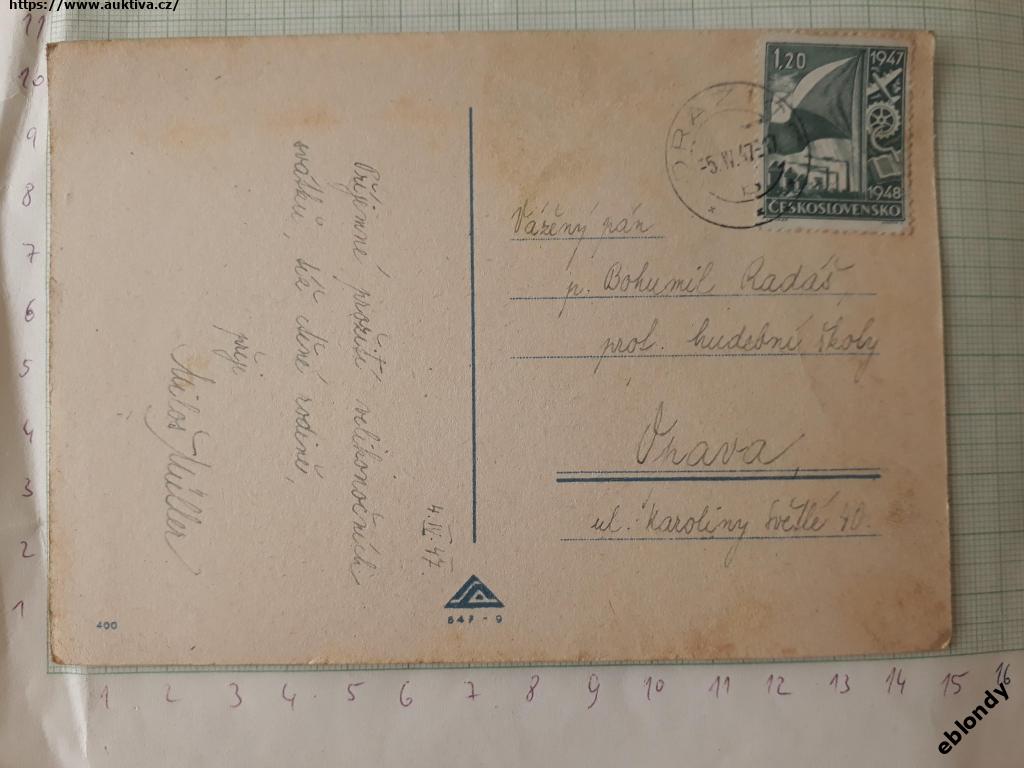 https://www.auktiva.cz/
Příjemné prožití velikonočních
svátků, též ctěné rodině,
přeje
Miloš Müller
4.IV.47.
1,20
1947
1948
ČESKOSLOVENSKO
-5.IV.47
Vážený pán
p. Bohumil Radáš,
prof. hudební školy
Orava,
ul. Karoliny Světlé 40.
400
647 - 9
11
10
9
8
7
6
5
4
3
2
1
1 2 3 4 5 6 7 8 9 10 11 12 13 14 15 16
eblondy